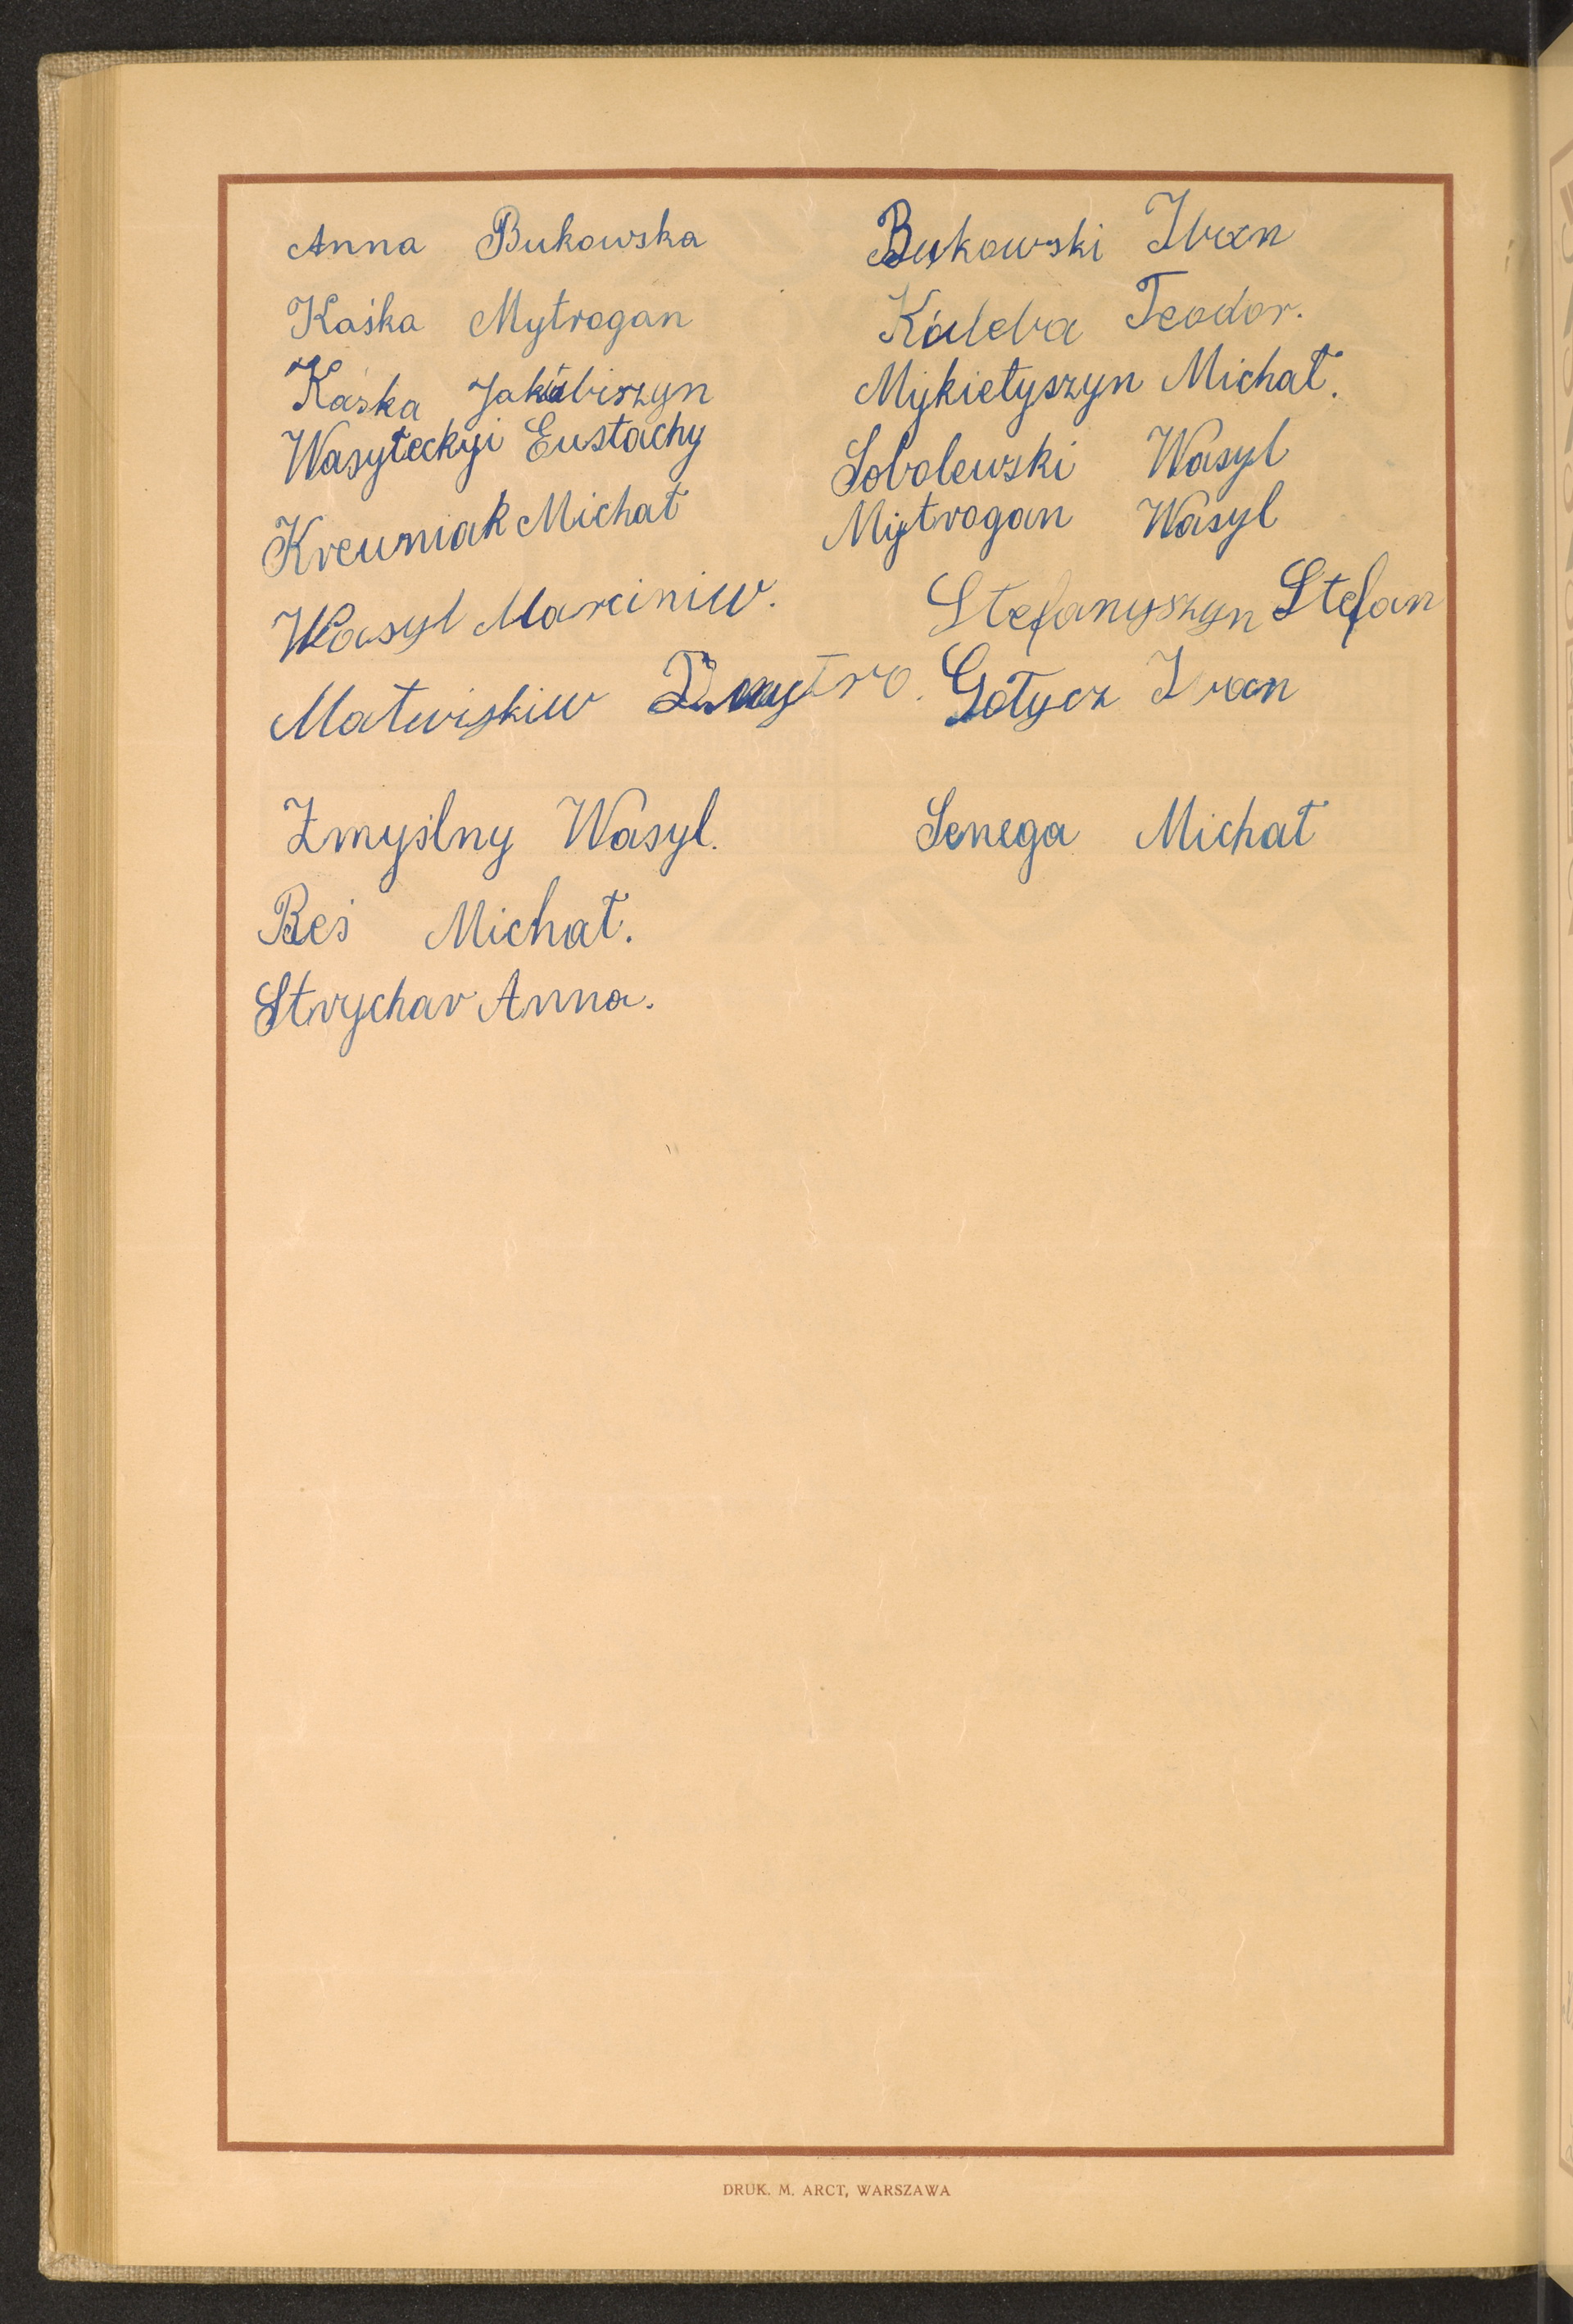 Anna Bukowska
Kaśka Mytrogan
Kaśka Jakubiszyn
Wasyłeckyi Eustachy
Kreuniak Michał
Wasyl Marciniw.
Matwijkiw Dmytro.
Zmyślny Wasyl.
Beś Michał.
Strychar Anna.
Bukowski Iwan
Kaleba Teodor.
Mykietyszyn Michał.
Sobolewski Wasyl
Mytrogan Wasyl
Stefanyszyn Stefan
Gołycz Iwan
Senega Michał
DRUK. M. ARCT, WARSZAWA